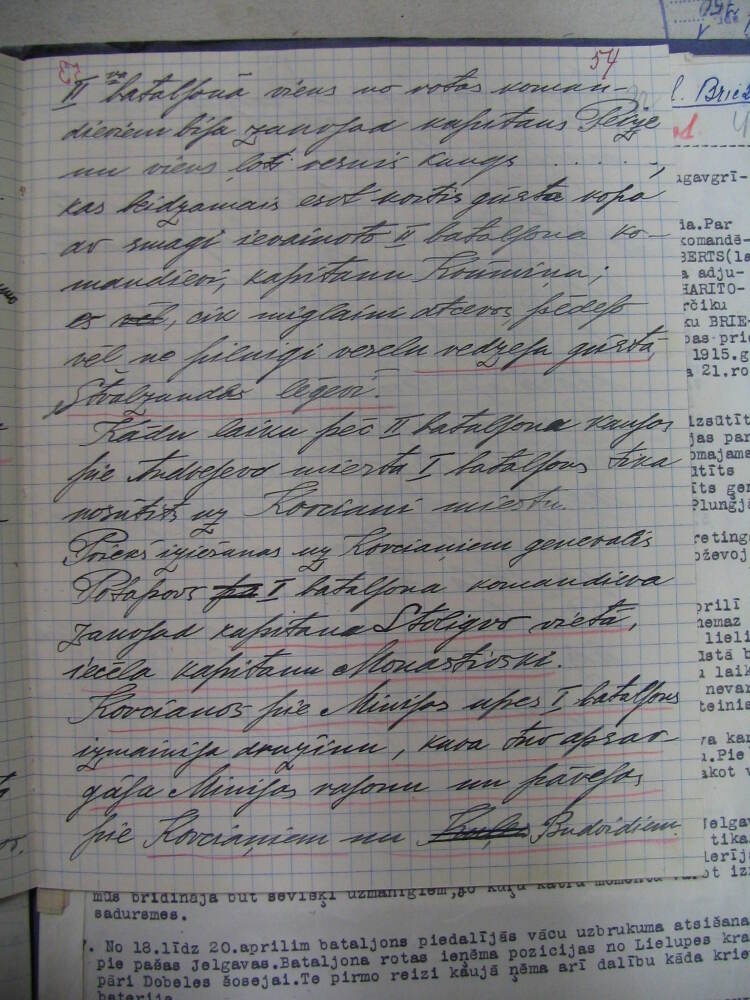 54
II vā bataljonā viens no rotas koman-
dieriem bija zanosad kapitans
un viens ļoti resnis kungs . . . . . . ,
kas beidzamais esot kritis gūstā kopā
ar smagi ievainoto II bataljona ko-
mandieri, kapitanu ;
es , cik miglaini atceros, pēdejo
vēl no pilnigi veselu redzeja gūstā,
Štralzundas lēģerī.
Kādu laiku pēc II bataljona kaujas
pie Andrejevo miesta I bataljons tika
nosūtīts uz Korciani miestu.
Priekš iziešanas uz Korcianiem generalis
Potapovs I bataljona komandiera
zanosad kapitana Stoligvo vietā,
iecēla kapitanu Monastirski.
Korcianos pie Minijas upes I bataljons
izmainija družinu, kura tur apsar-
gāja Minijas rajonu un pārejas
pie Korcianiem un Budridiem.
l. Briež
d.
ugavgrī-
ia.Par
komandē-
BERTS(la
a adju-
HARITO-
rčiku
ku BRIE-
pas prie
1915.g
a 21.ro
izsūtīt
jas par
omajams
ūtīts
īts ģen
Pluņģjā
retings
oževoj
prilī
nemaz
lieli
ustā b
u laik
nevar
teinis
va kar
u.Pie
akot v
Jelgav
tika
lerijā
mūs brīdināja būt sevišķi uzmanīgiem,jo kuŗu katru momentu varot izn
sadursmes.
. No 18.līdz 20.aprilim bataljons piedalījās vācu uzbrukuma atsišana
pie pašas Jelgavas.Bataljona rotas ieņēma pozicijas no Lielupes kra
pāri Dobeles šosejai.Te pirmo reizi kaujā ņēma arī dalību kāda krie
baterija